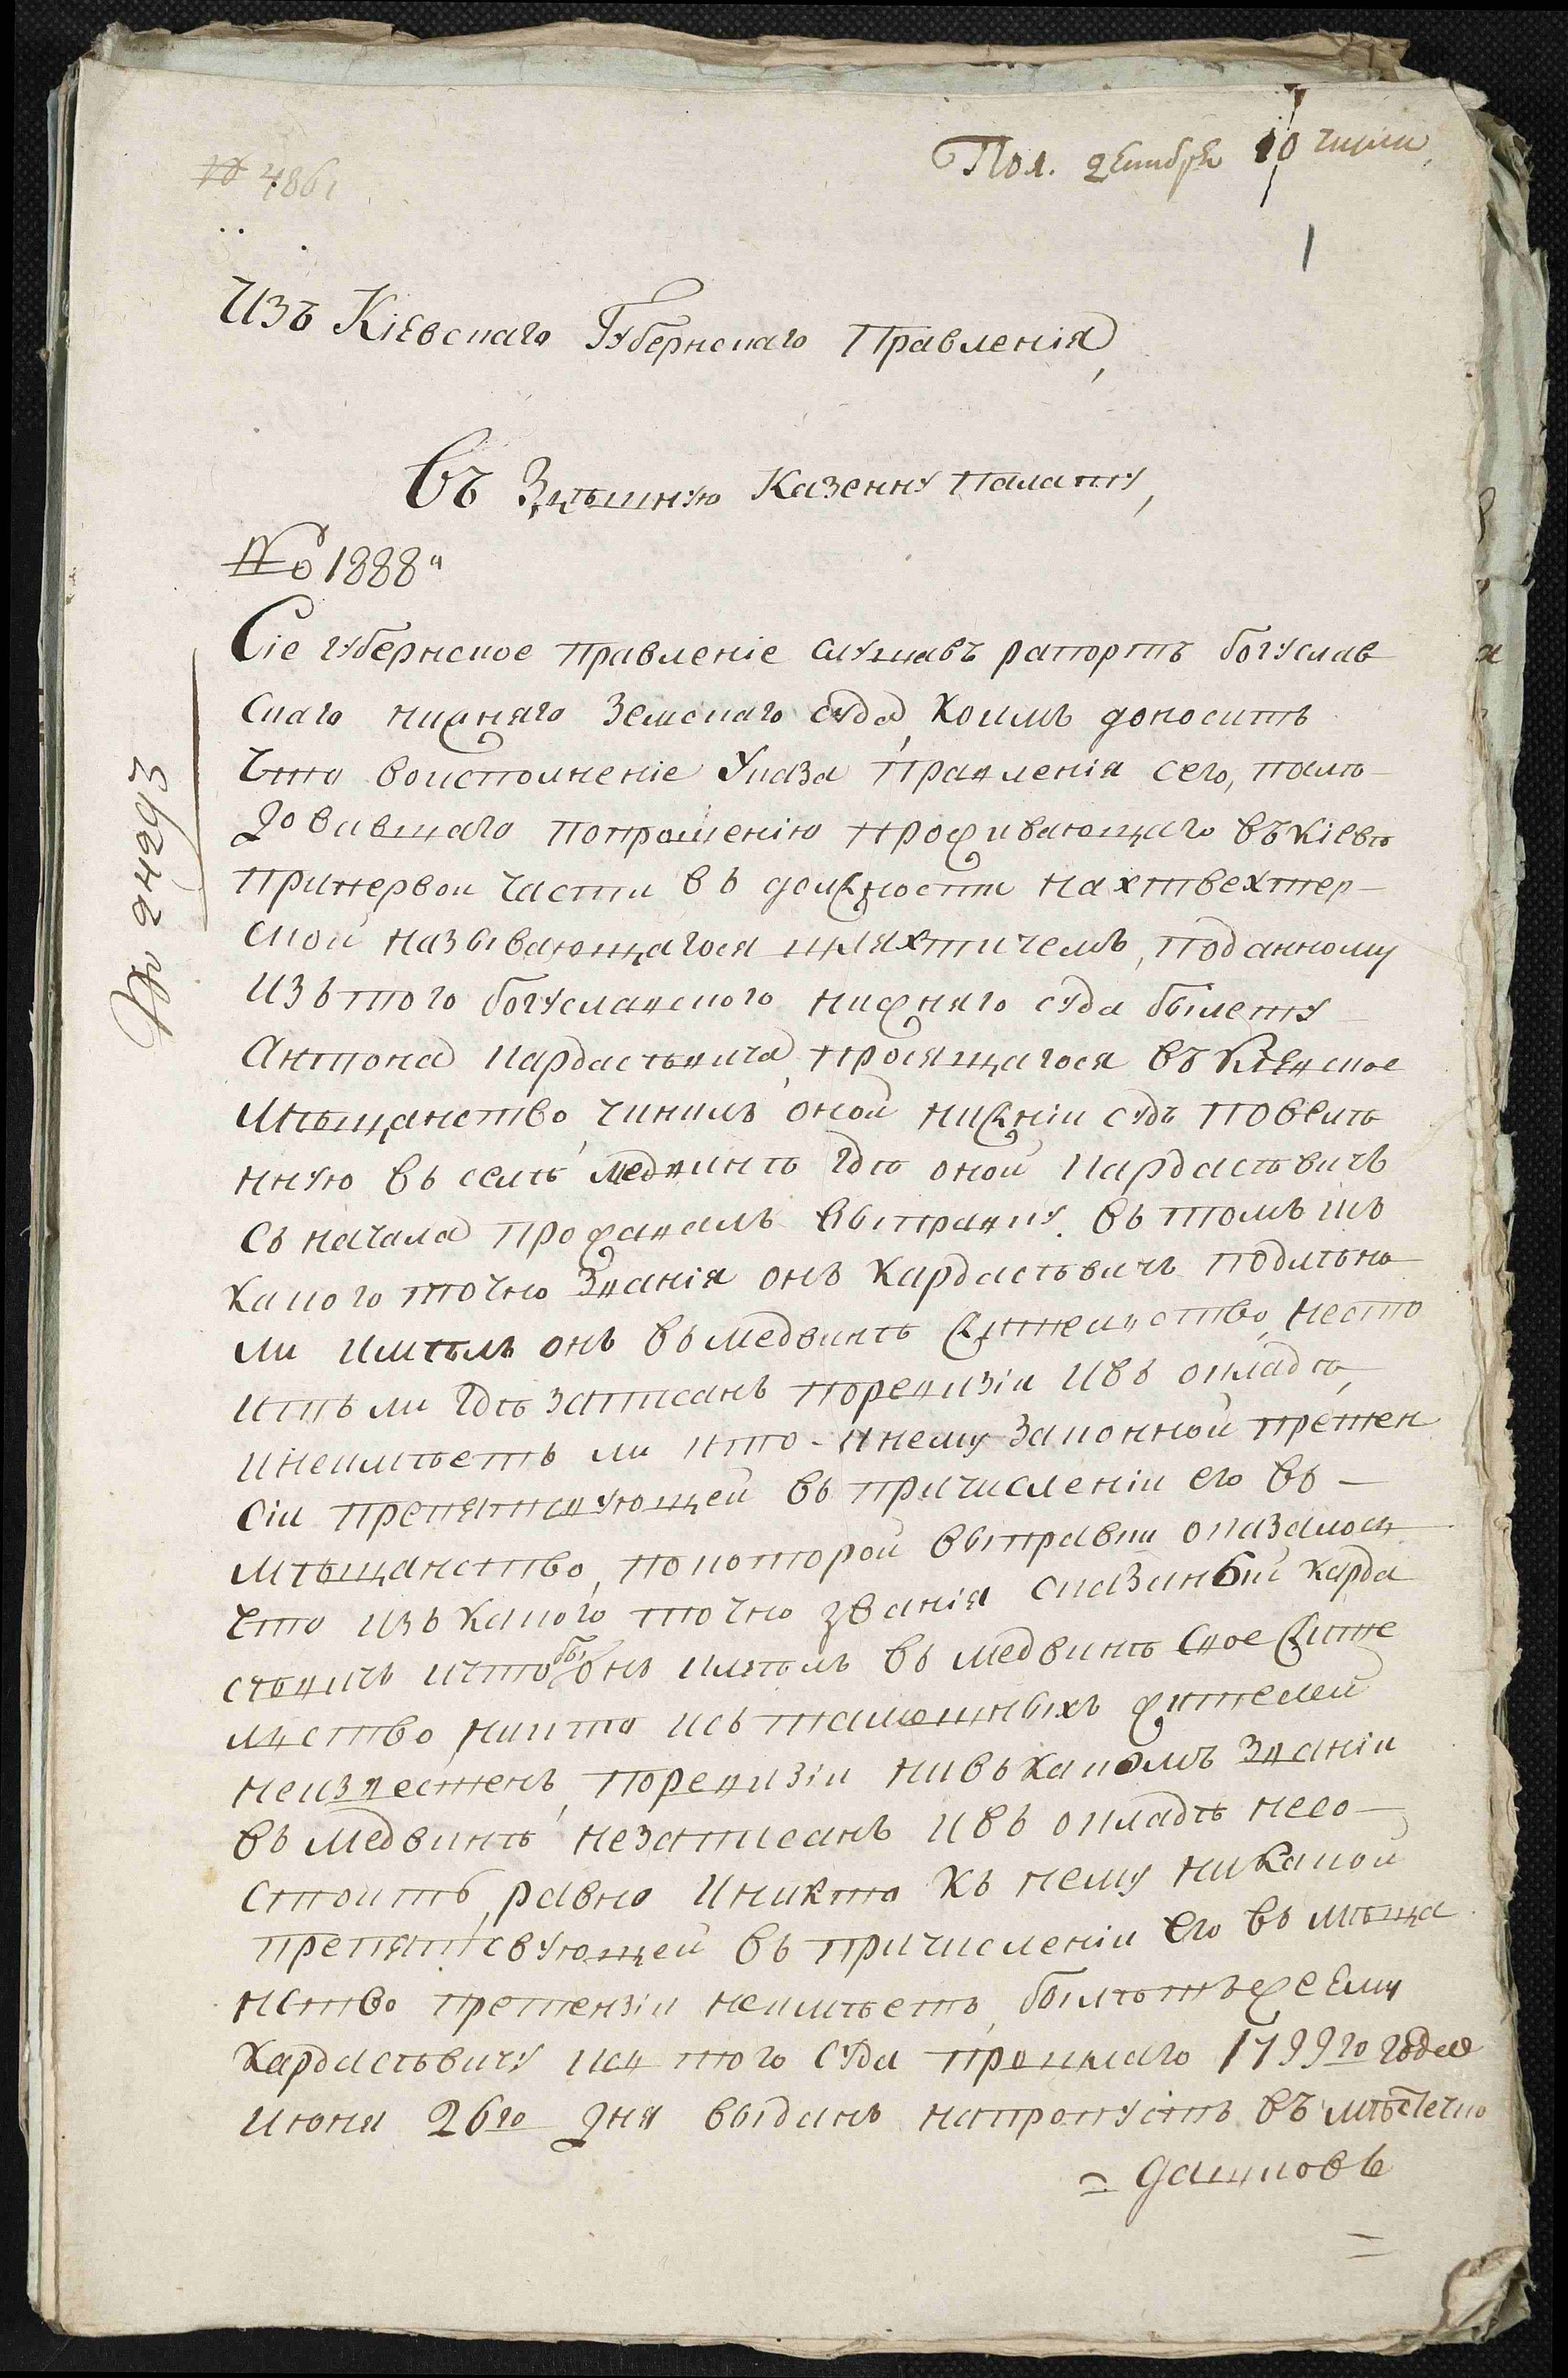 № 4861
Пол. декабря 10 числа
1
Изъ Кіевскаго Губернскаго Правленія,
Въ Здѣшную Казенну палату,
№ 1888"
№ 24293
Сіе губернское правленіе слушавъ рапортъ богуслав
скаго нижняго Земскаго суда, коимъ доноситъ
Что воисполненіе Указа правленія сего, пслѣ
довавшаго попрошенію проживающаго въ Кіевѣ
припервой части въ должности нахтвехтер
ской называющагося шляхтичемъ, поданному
Изъ того богуславского нижняго суда былету
Антона Кардастѣвича, просящагося въ Кіевское
мѣщанство, чинилъ оной нижній судъ повсилѣ
нную въ селѣ медвинѣ гдѣ оной Кардастѣвичъ
съ начала проживалъ выправку. въ томъ изъ
Какого точно званія онъ Кардастѣвичъ подлѣнно
ли имѣлъ онъ въ медвинѣ жительство, несто
итъ ли гдѣ записанъ поревизіи ивъ окладѣ,
инеимѣетъ ли кто кнему законной претен
сіи препятствующей въ причисленіи его въ
мѣщанство, покоторой выправки оказалось
Что изъ Какого точно званія сказанный карда
стѣвичъ ичтобы онъ имѣлъ въ медвинѣ свое жите
льство никто изъ тамошныхъ жителей
неизвестенъ, поревизіи нивъ какомъ званіи
въ медвинѣ незаписанъ ивъ окладѣ несо
стоитъ, равно иникто къ нему никакой
препятсвующей въ причисленіи его въ мѣща
нство претензіи неимѣетъ, былѣтъ же Ему
Кардастѣвичу изъ того суда прошлаго 1799го года
июня 26го дня выданъ напропускъ въ мѣстечко
Дашковъ